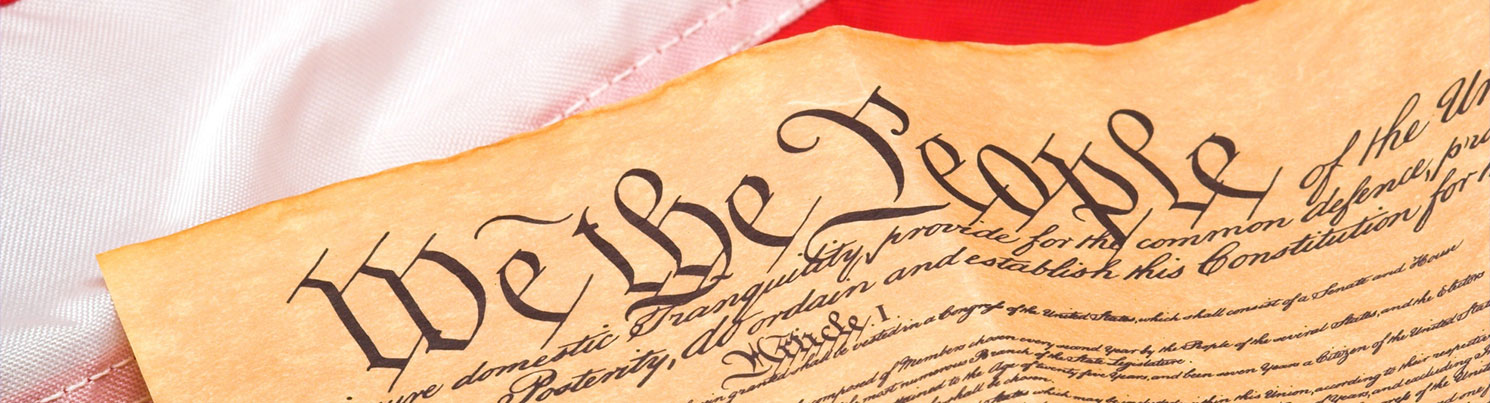 We the People of the Un
ure domestic Tranquility, provide for the common defence, pro
Posterity, do ordain and establish this Constitution for
Article. I.
granted shall be vested in a Congress of the United States, which shall consist of a Senate and House
composed of Members chosen every second Year by the People of the several States, and the Electors
most numerous Branch of the State Legislature.
attained to the Age of twenty five Years, and been seven Years a Citizen of the United Stat
shall be chosen.
States which may be included within this Union, according to their respective
of Years, and excluding In